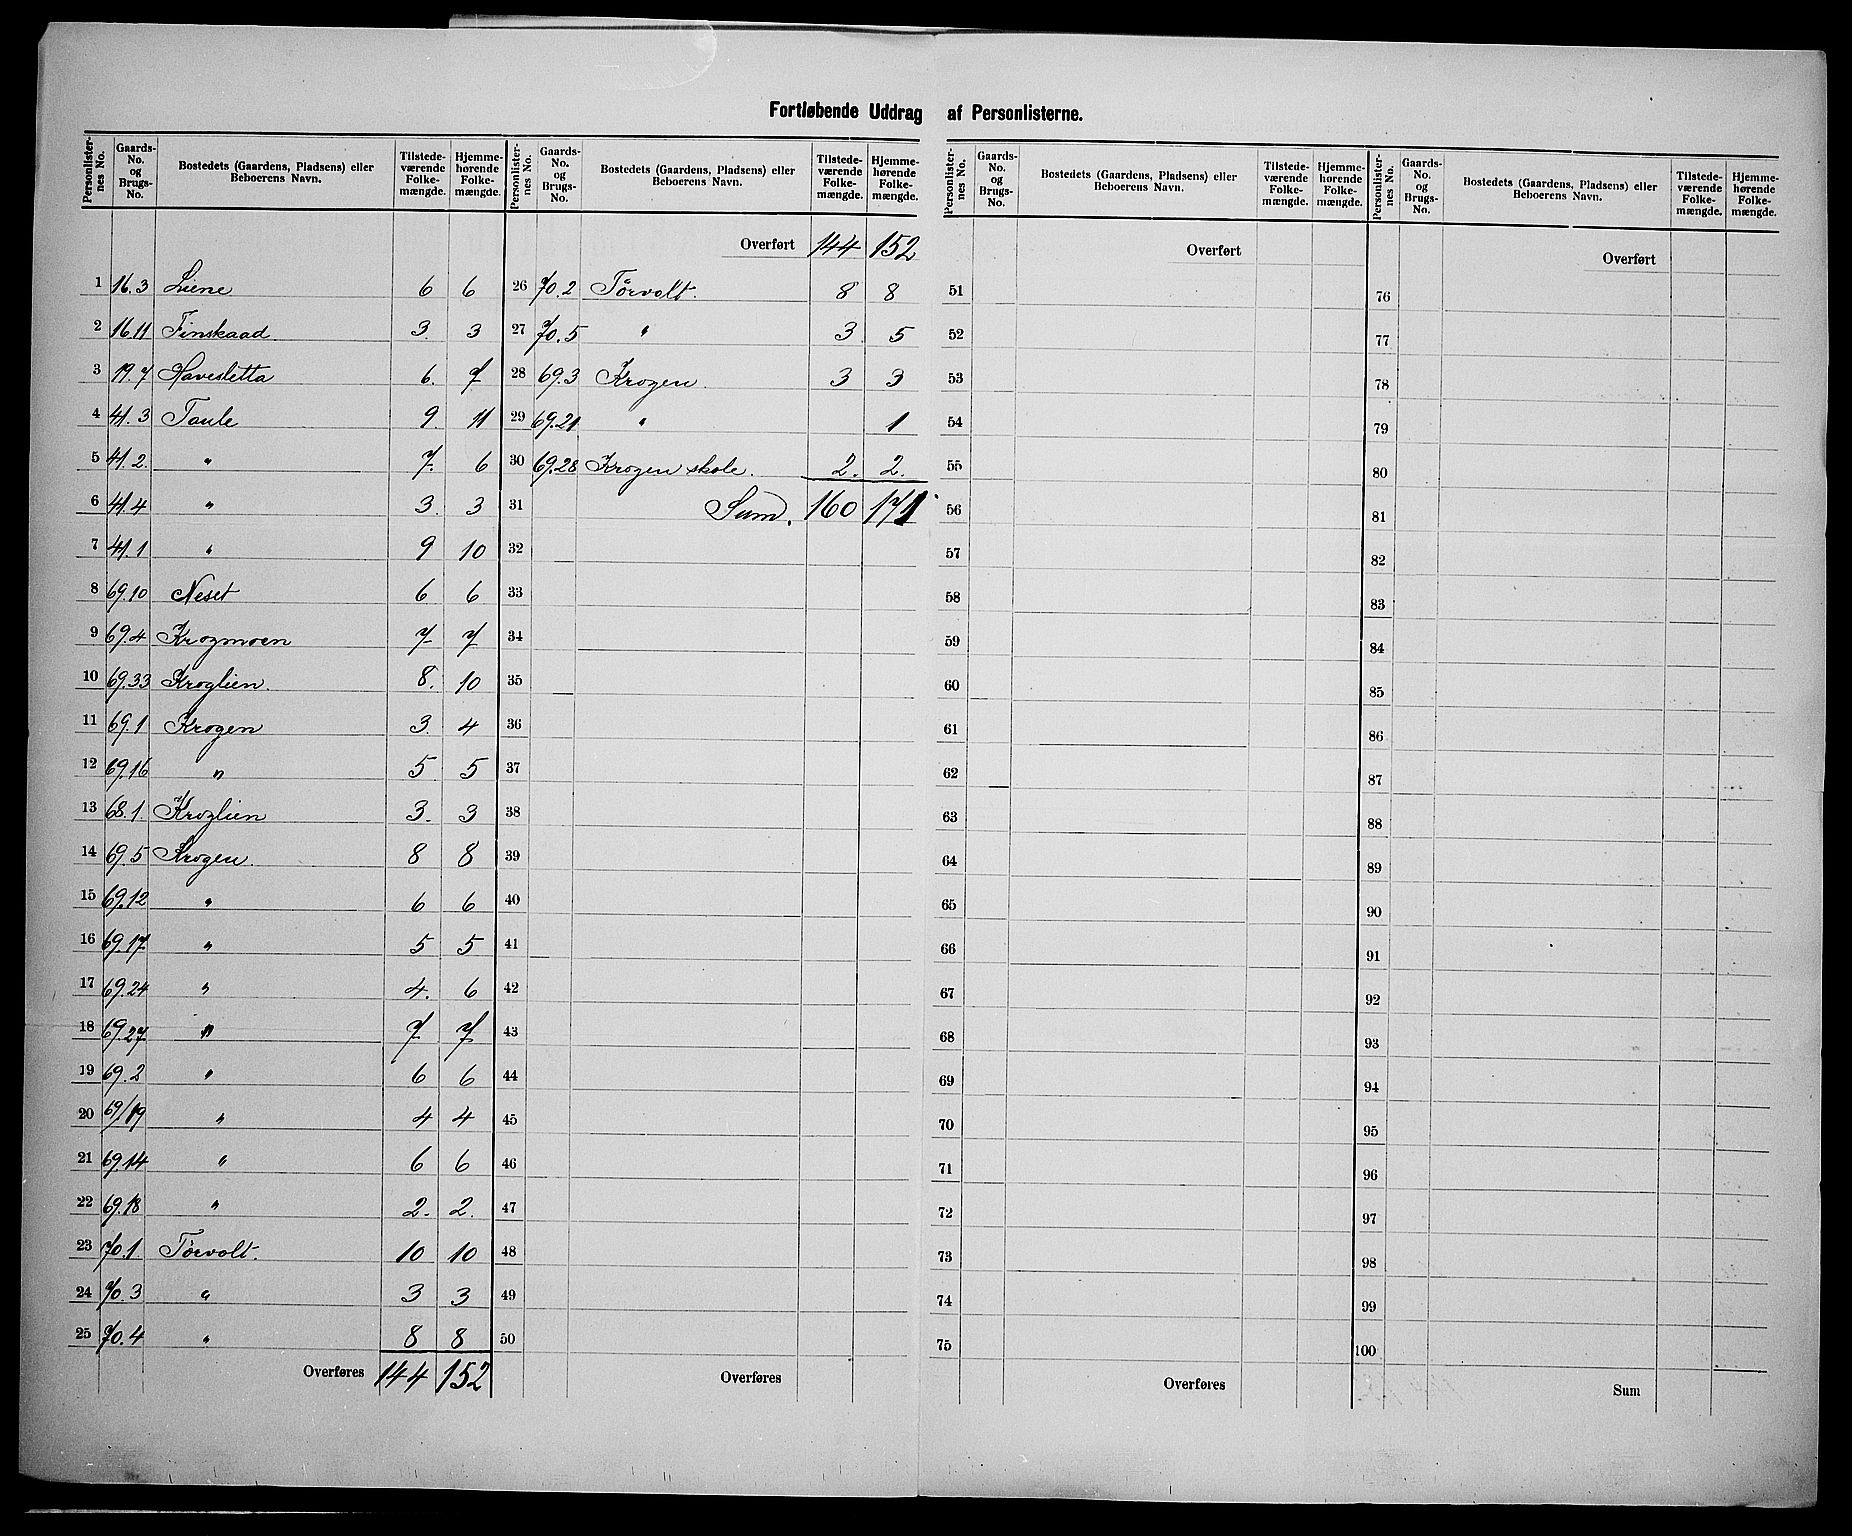 Fortløbende Uddrag af Personlisterne.
Personlisternes No. | Gaards-No. og Brugs-No. | Bostedets (Gaardens, Pladsens) eller Beboerens Navn. | Tilstedeværende Folkemængde. | Hjemmehørende Folkemængde.
1 16.3 Luene 6 6
2 16.11 Finskaad. 3. 3
3 19.7 Havesletta 6. 7
4 41.3 Taule 9. 11
5 41.2. " 7. 6
6 41.4 " 3. 3
7 41.1 " 9 10
8 69.10 Neset 6 6
9 69.4 Krogmoen 7 7
10 69.33 Kroglien. 8. 10
11 69.1 Krogen 3. 4
12 69.16 " 5. 5
13 68.1. Kroglien 3. 3
14 69.5 Krogen. 8 8
15 69.12 " 6 6
16 69.17 " 5 5
17 69.24 " 4. 6
18 69.27 " 7 7
19 69.2 " 6 6
20 69/19 " 4 4
21 69.14 " 6 6
22 69.18 " 2. 2.
23 70.1 Tørvolt. 10 10
24 70.3 " 3 3
25 70.4 " 8 8
Overføres 144 152
Personlisternes No. | Gaards-No. og Brugs-No. | Bostedets (Gaardens, Pladsens) eller Beboerens Navn. | Tilstedeværende Folkemængde. | Hjemmehørende Folkemængde.
Overført 144 152
26 70.2 Tørvolt. 8 8
27 70.5 " 3 5
28 69.3 Krogen. 3 3
29 69.21 " 1
30 69.28 Krogen skole. 2. 2.
31 Sum. 160 171
32
33
34
35
36
37
38
39
40
41
42
43
44
45
46
47
48
49
50
Overføres
Personlisternes No. | Gaards-No. og Brugs-No. | Bostedets (Gaardens, Pladsens) eller Beboerens Navn. | Tilstedeværende Folkemængde. | Hjemmehørende Folkemængde.
Overført
51
52
53
54
55
56
57
58
59
60
61
62
63
64
65
66
67
68
69
70
71
72
73
74
75
Overføres
Personlisternes No. | Gaards-No. og Brugs-No. | Bostedets (Gaardens, Pladsens) eller Beboerens Navn. | Tilstedeværende Folkemængde. | Hjemmehørende Folkemængde.
Overført
76
77
78
79
80
81
82
83
84
85
86
87
88
89
90
91
92
93
94
95
96
97
98
99
100
Sum